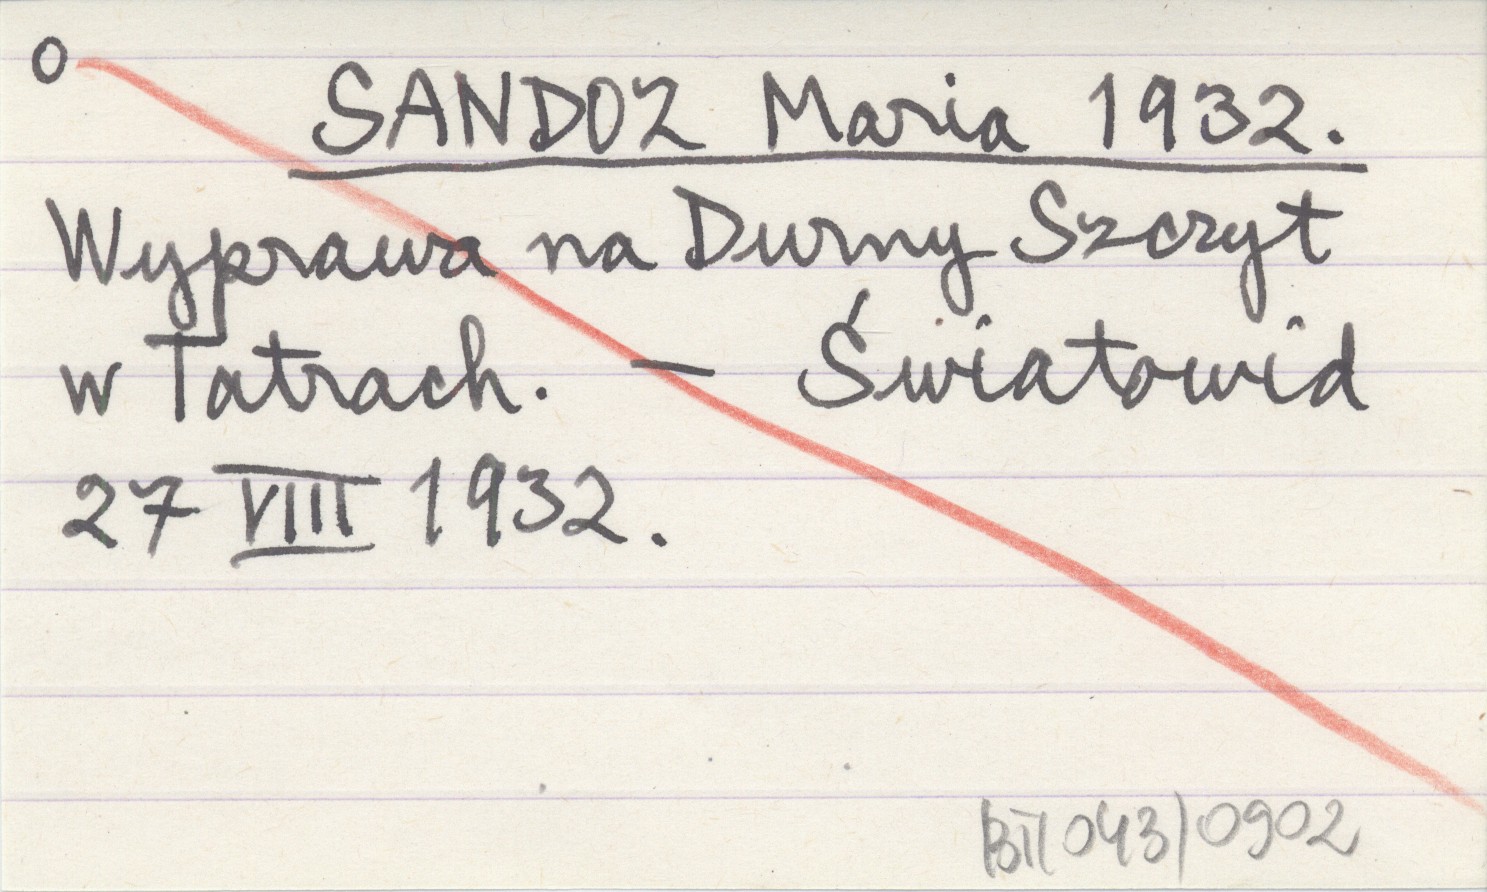 O
SANDOZ Maria 1932.
Wyprawa na Durny Szczyt
w Tatrach. — Światowid
27 VIII 1932.
BII/043/0902